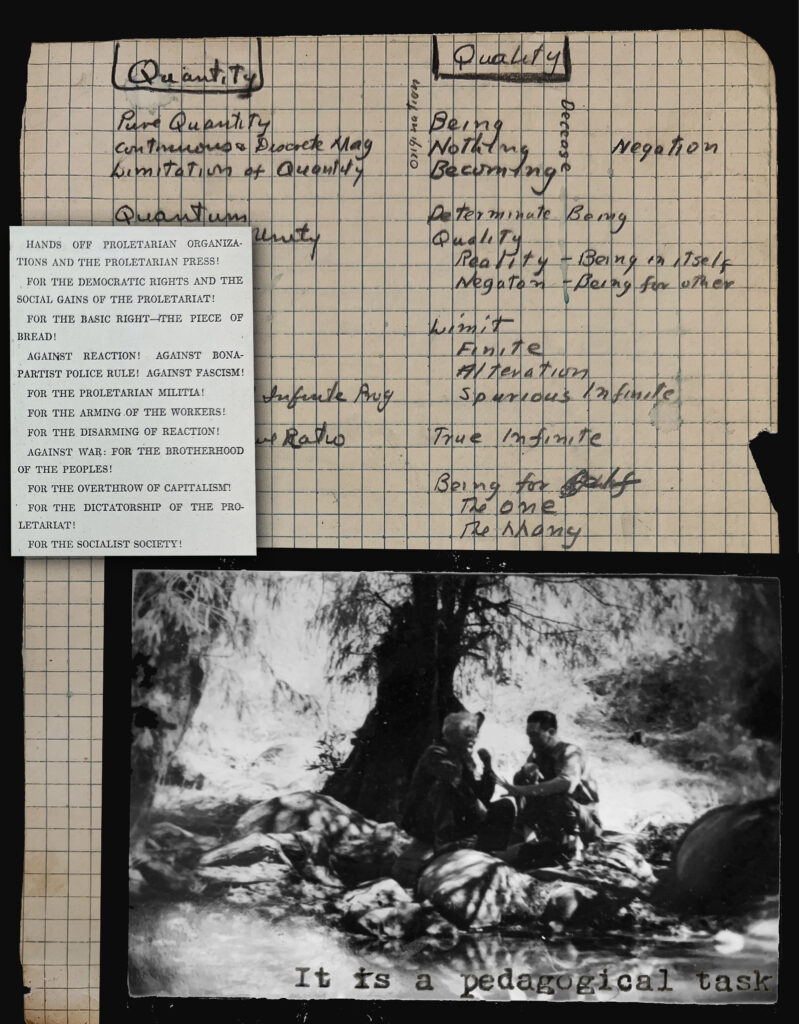 Quantity
Pure Quantity
Continuous & Discrete Mag
Limitation of Quantity
Quantum
Unity
Infinite Prog
Ratio
origination
Quality
Being
Nothing
Becoming
Decease
Negation
Determinate Being
Quality
Reality - Being in itself
Negaton - Being for other
Limit
Finite
Alteration
Spurious Infinite
True Infinite
Being for
The one
The Many
HANDS OFF PROLETARIAN ORGANIZA-
TIONS AND THE PROLETARIAN PRESS!
FOR THE DEMOCRATIC RIGHTS AND THE
SOCIAL GAINS OF THE PROLETARIAT!
FOR THE BASIC RIGHT—THE PIECE OF
BREAD!
AGAINST REACTION! AGAINST BONA-
PARTIST POLICE RULE! AGAINST FASCISM!
FOR THE PROLETARIAN MILITIA!
FOR THE ARMING OF THE WORKERS!
FOR THE DISARMING OF REACTION!
AGAINST WAR: FOR THE BROTHERHOOD
OF THE PEOPLES!
FOR THE OVERTHROW OF CAPITALISM!
FOR THE DICTATORSHIP OF THE PRO-
LETARIAT!
FOR THE SOCIALIST SOCIETY!
It is a pedagogical task